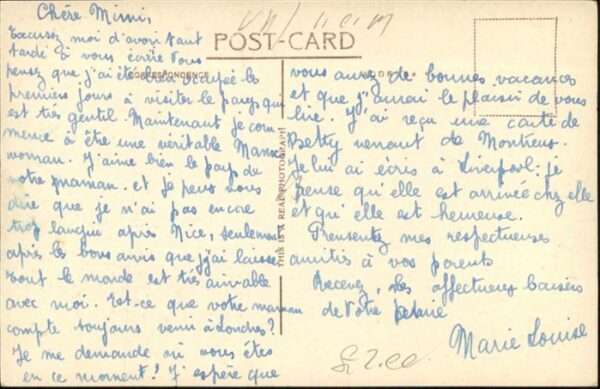 Chère Mimi,
Excusez moi d'avoir tant
tardé à vous écrire Vous
pensez que j'ai été bien occupée les
premiers jours à visiter le pays qui
est très gentil. Maintenant je com
mence à être une véritable Manx
woman. J'aime bien le pays de
votre maman. et je peux vous
dire que je n'ai pas encore
trop langui après Nice, seulement
après les bons amis que j'ai laissé
tout le monde est très aimable
avec moi. Est-ce que votre maman
compte toujours venir à Londres?
Je me demande où vous êtes
en ce moment! J'espère que
POST-CARD
CORRESPONDENCE
THIS IS A REAL PHOTOGRAPH
vous avez de bonnes vacances
et que j'aurai le plaisir de vous
lire. J'ai reçu une carte de
Betty venant de Montreux.
Je lui ai écris à Liverpool: je
pense qu'elle est arrivée chez elle
et qu'elle est heureuse.
Présentez mes respectueuses
amitiés à vos parents
Recevez, les affectueux baisers
de Votre
Marie Louise